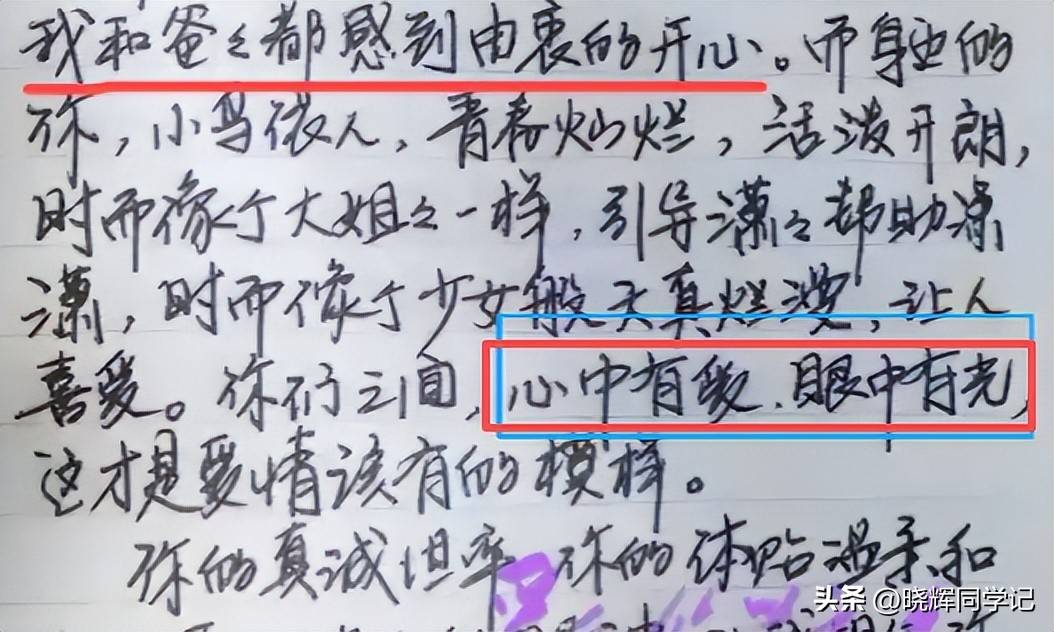 我和爸々都感到由衷的开心。而身边的
你，小鸟依人，青春灿烂，活泼开朗，
时而像个大姐々一样，引导潇々帮助潇
潇，时而像个少女般天真烂漫，让人
喜爱。你们之间，心中有爱、眼中有光，
这才是爱情该有的模样。
你的真诚坦率 你的体贴温柔和
头条 @晓辉同学记